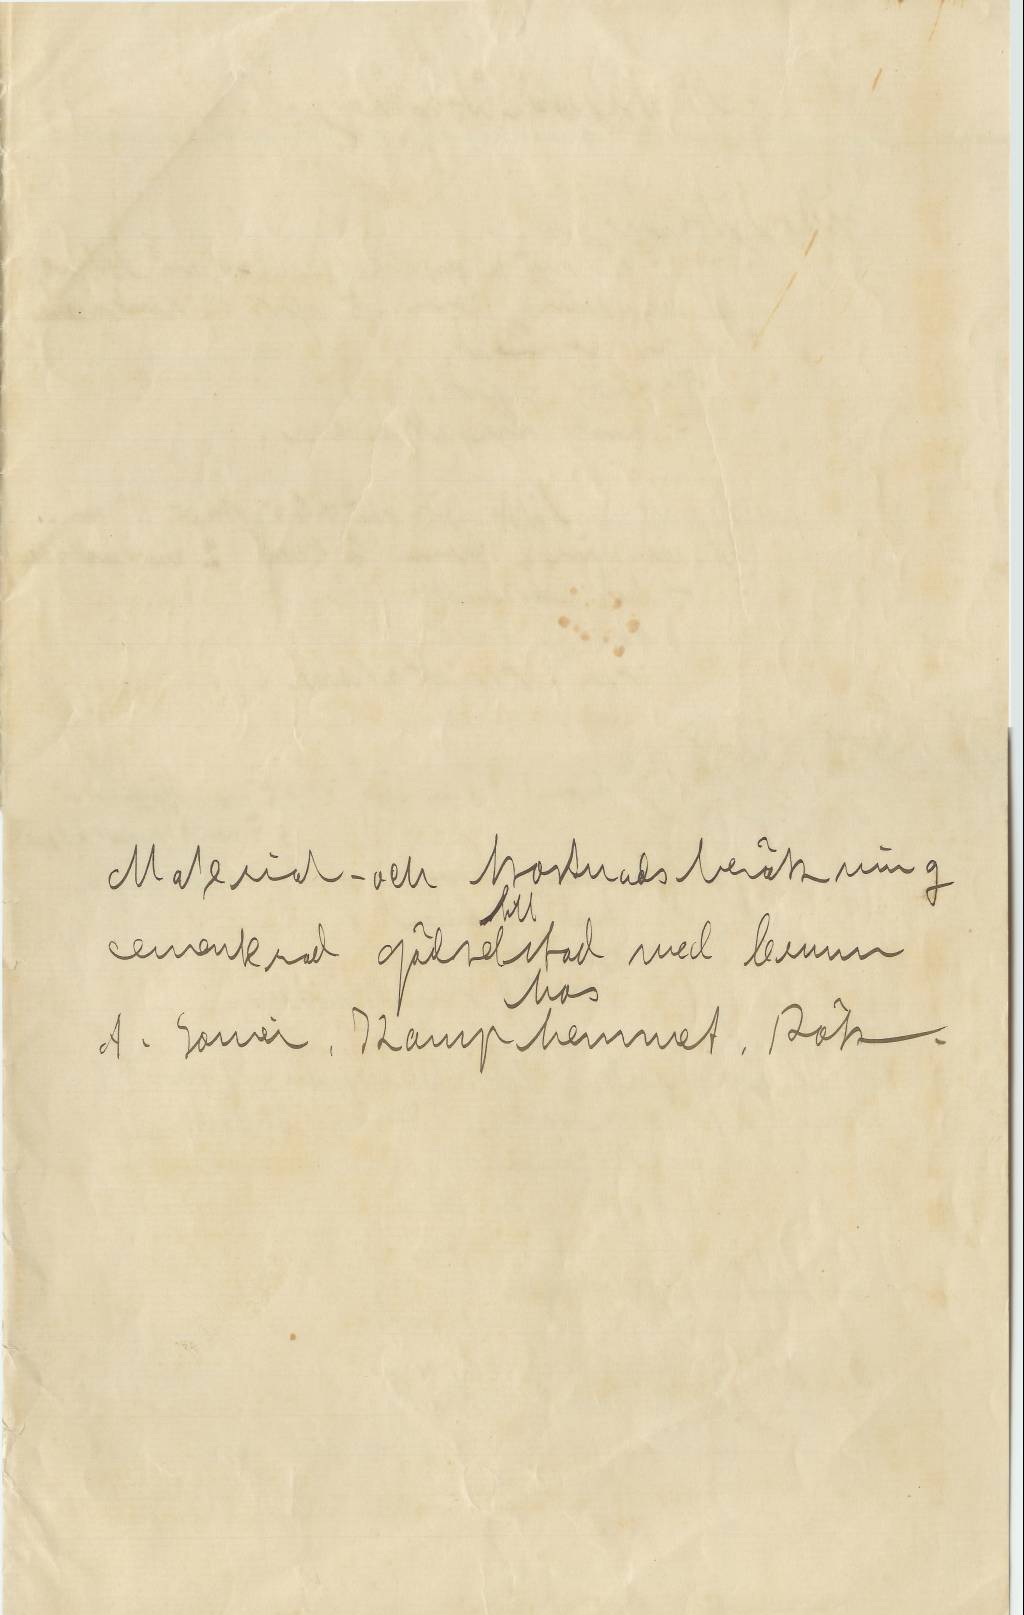 Material-och kostnadsberäkning
till
cementerad gödselstad med brunn
hos
A. , Kamphemmet, Rök.